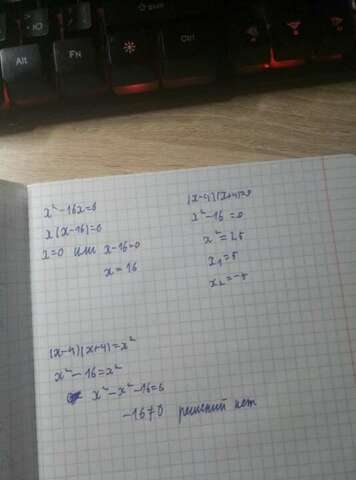 Alt
FN
Ctrl
Shift
x² - 16x = 0
x(x-16)=0
x=0 или x-16=0
x = 16
(x-4)(x+4)=9
x² - 16 = 9
x² = 25
x₁ = 5
x₂ = -5
(x-4)(x+4) = x²
x² - 16 = x²
x² - x² - 16 = 0
-16≠0 решений нет